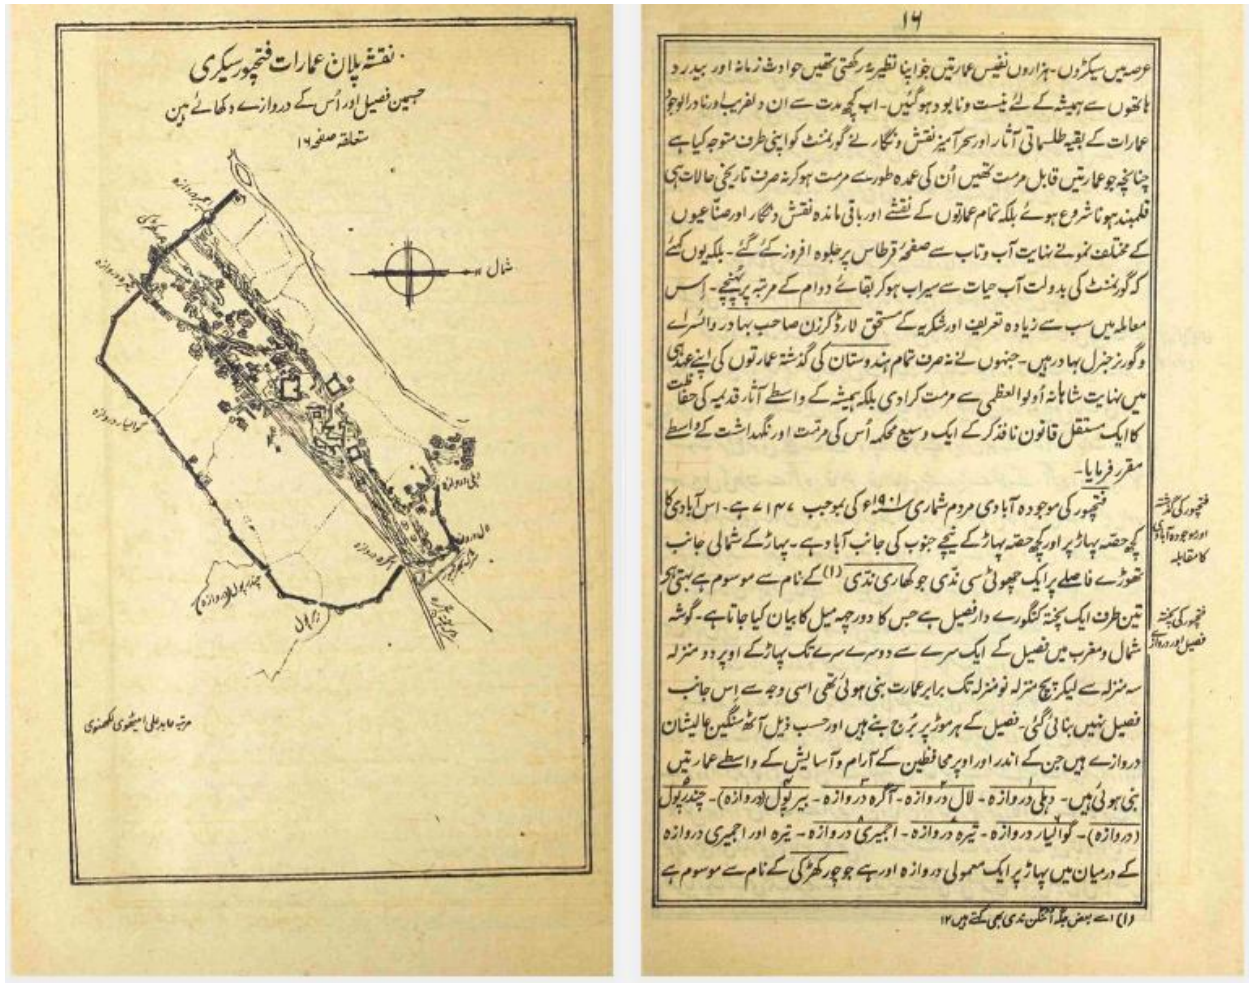 نقشہ پلان عمارات فتحپور سیکری
جسمین فصیل اور اُس کے دروازے دکھائے ہین
متعلقہ صفحہ ۱۶
اجمیر دروازہ
چور کھڑکی
تیرہ دروازہ
شمال
گوالیار دروازہ
دہلی دروازہ
لال دروازہ
آگرہ دروازہ
چندرپول (دروازہ)
بیرپول
مرتبہ عابد علی امیٹھوی لکھنوی
۱۶
عرصہ میں سیکڑوں۔ ہزاروں نفیس عمارتیں جو اپنا نظیر نہ رکھتی تھیں حوادث زمانہ اور بیدرد
ہاتھوں سے ہمیشہ کے لئے نیست و نابود ہوگئیں۔ اب کچھ مدت سے ان دلفریب اور نادرالوجود
عمارات کے بقیہ طلسماتی آثار اور سحر آمیز نقش و نگار نے گورنمنٹ کو اپنی طرف متوجہ کیا ہے
چنانچہ جو عمارتیں قابل مرمت تھیں اُن کی عمدہ طور سے مرمت ہوکر نہ صرف تاریخی حالات ہی
قلمبند ہونا شروع ہوئے بلکہ تمام عمارتوں کے نقشے اور باقی ماندہ نقش و نگار اور صنّاعیوں
کے مختلف نمونے نہایت آب و تاب سے صفحۂ قرطاس پر جلوہ افروز کئے گئے۔ بلکہ یوں کہئے
کہ گورنمنٹ کی بدولت آب حیات سے سیراب ہوکر بقائے دوام کے مرتبہ پر پہُنچے۔ اِس
معاملہ میں سب سے زیادہ تعریف اور شکریہ کے مستحق لارڈ کرزن صاحب بہادر وائسرائے
و گورنر جنرل بہادر ہیں۔ جنہوں نے نہ صرف تمام ہندوستان کی گذشتہ عمارتوں کی اپنے عہد ہی
میں نہایت شاہانہ اُولوالعظمی سے مرمت کرادی بلکہ ہمیشہ کے واسطے آثار قدیمہ کی حفاظت
کا ایک مستقل قانون نافذ کرکے ایک وسیع محکمہ اُس کی مرمّت اور نگہداشت کے واسطے
مقرر فرمایا۔
فتحپور کی گذشتہ
اور موجودہ آبادی
کا مقابلہ
فتحپور کی موجودہ آبادی مردم شماری ۱۹۰۱ء کی بموجب ۷۱۴۷ ہے۔ اس آبادی کا
کچھ حصّہ پہاڑ پر اور کچھ حصّہ پہاڑ کے نیچے جنوب کی جانب آباد ہے۔ پہاڑ کے شمالی جانب
تھوڑے فاصلے پر ایک چھوٹی سی ندّی جو کھاری ندّی (۱) کے نام سے موسوم ہے بہتی ہے
فتحپور کی پختہ
فصیل اور دروازے
تین طرف ایک پختہ کنگورے دار فصیل ہے جس کا دور چھ میل کا بیان کیا جاتا ہے۔ گوشہ
شمال و مغرب میں فصیل کے ایک سرے سے دوسرے سرے تک پہاڑ کے اوپر دو منزلہ
سہ منزلہ سے لیکر پنج منزلہ نو منزلہ تک برابر عمارت بنی ہوئی تھی اسی وجہ سے اِس جانب
فصیل نہیں بنائی گئی۔ فصیل کے ہر موڑ پر بُرج بنے ہیں اور حسب ذیل آٹھ سنگین عالیشان
دروازے ہیں جن کے اندر اور اوپر محافظین کے آرام و آسایش کے واسطے عمارتیں
بنی ہوئی ہیں۔ دہلی دروازہ۔ لال دروازہ۔ آگرہ دروازہ۔ بیرپول (دروازہ)۔ چندرپول
(دروازہ)۔ گوالیار دروازہ۔ تیرہ دروازہ۔ اجمیری دروازہ۔ تیرہ اور اجمیری دروازہ
کے درمیان میں پہاڑ پر ایک معمولی دروازہ اور ہے جو چور کھڑکی کے نام سے موسوم ہے
(۱) اسے بعض جگہ اُٹنگن ندی بھی کہتے ہیں ۱۲